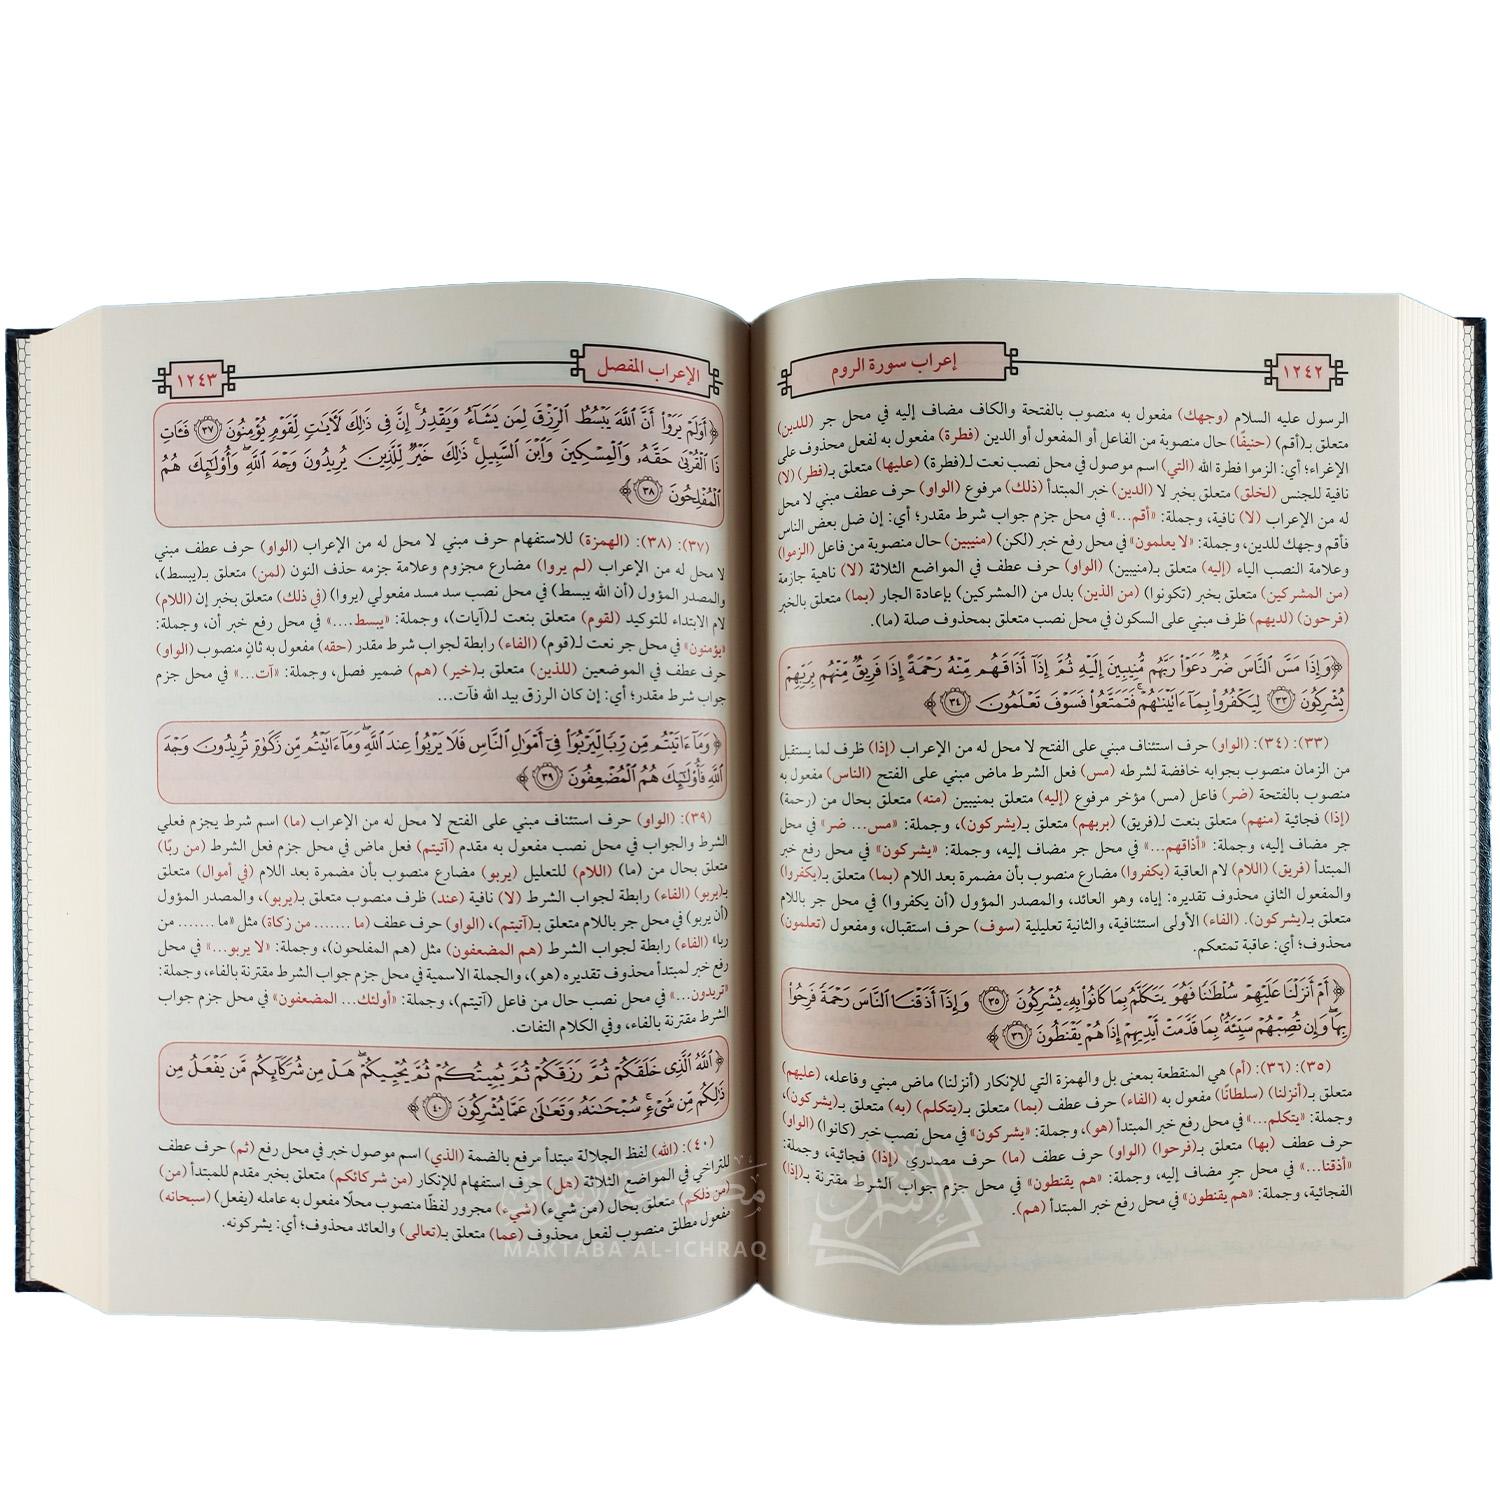 إعراب سورة الروم
١٢٤٢
الرسول عليه السلام (وجهك) مفعول به منصوب بالفتحة والكاف مضاف إليه في محل جر (للدين)
متعلق بـ(أقم) (حنيفًا) حال منصوبة من الفاعل أو المفعول أو الدين (فطرة) مفعول به لفعل محذوف على
الإغراء؛ أي: الزموا فطرة الله (التي) اسم موصول في محل نصب نعت لـ(فطرة) (عليها) متعلق بـ(فطر) (لا)
نافية للجنس (لخلق) متعلق بخبر لا (الدين) خبر المبتدأ (ذلك) مرفوع (الواو) حرف عطف مبني لا محل
له من الإعراب (لا) نافية، وجملة: «أقم...» في محل جزم جواب شرط مقدر؛ أي: إن ضل بعض الناس
فأقم وجهك للدين، وجملة: «لا يعلمون» في محل رفع خبر (لكن) (منيبين) حال منصوبة من فاعل (الزموا)
وعلامة النصب الياء (إليه) متعلق بـ(منيبين) (الواو) حرف عطف في المواضع الثلاثة (لا) ناهية جازمة
(من المشركين) متعلق بخبر (تكونوا) (من الذين) بدل من (المشركين) بإعادة الجار (بما) متعلق بالخبر
(فرحون) (لديهم) ظرف مبني على السكون في محل نصب متعلق بمحذوف صلة (ما).
﴿وَإِذَا مَسَّ ٱلنَّاسَ ضُرٌّ دَعَوۡاْ رَبَّهُم مُّنِيبِينَ إِلَيۡهِ ثُمَّ إِذَآ أَذَاقَهُم مِّنۡهُ رَحۡمَةً إِذَا فَرِيقٌ مِّنۡهُم بِرَبِّهِمۡ
يُشۡرِكُونَ ٣٣ لِيَكۡفُرُواْ بِمَآ ءَاتَيۡنَٰهُمۡۚ فَتَمَتَّعُواْ فَسَوۡفَ تَعۡلَمُونَ ٣٤﴾
(٣٣): (٣٤): (الواو) حرف استئناف مبني على الفتح لا محل له من الإعراب (إذا) ظرف لما يستقبل
من الزمان منصوب بجوابه خافضة لشرطه (مس) فعل الشرط ماض مبني على الفتح (الناس) مفعول به
منصوب بالفتحة (ضر) فاعل (مس) مؤخر مرفوع (إليه) متعلق بمنيبين (منه) متعلق بحال من (رحمة)
(إذا) فجائية (منهم) متعلق بنعت لـ(فريق) (بربهم) متعلق بـ(يشركون)، وجملة: «مس... ضر» في محل
جر مضاف إليه، وجملة: «أذاقهم...» في محل جر مضاف إليه، وجملة: «يشركون» في محل رفع خبر
المبتدأ (فريق) (اللام) لام العاقبة (يكفروا) مضارع منصوب بأن مضمرة بعد اللام (بما) متعلق بـ(يكفروا)
والمفعول الثاني محذوف تقديره: إياه، وهو العائد، والمصدر المؤول (أن يكفروا) في محل جر باللام
متعلق بـ(يشركون). (الفاء) الأولى استئنافية، والثانية تعليلية (سوف) حرف استقبال، ومفعول (تعلمون)
محذوف؛ أي: عاقبة تمتعكم.
﴿أَمۡ أَنزَلۡنَا عَلَيۡهِمۡ سُلۡطَٰنًا فَهُوَ يَتَكَلَّمُ بِمَا كَانُواْ بِهِۦ يُشۡرِكُونَ ٣٥ وَإِذَآ أَذَقۡنَا ٱلنَّاسَ رَحۡمَةً فَرِحُواْ
بِهَاۖ وَإِن تُصِبۡهُمۡ سَيِّئَةُۢ بِمَا قَدَّمَتۡ أَيۡدِيهِمۡ إِذَا هُمۡ يَقۡنَطُونَ ٣٦﴾
(٣٥): (٣٦): (أم) هي المنقطعة بمعنى بل والهمزة التي للإنكار (أنزلنا) ماض مبني وفاعله، (عليهم)
متعلق بـ(أنزلنا) (سلطانًا) مفعول به (الفاء) حرف عطف (بما) متعلق بـ(يتكلم) (به) متعلق بـ(يشركون)،
وجملة: «يتكلم...» في محل رفع خبر المبتدأ (هو)، وجملة: «يشركون» في محل نصب خبر (كانوا) (الواو)
حرف عطف (بها) متعلق بـ(فرحوا) (الواو) حرف عطف (ما) حرف مصدري (إذا) فجائية، وجملة:
«أذقنا...» في محل جر مضاف إليه، وجملة: «هم يقنطون» في محل جزم جواب الشرط مقترنة بـ(إذا)
الفجائية، وجملة: «هم يقنطون» في محل رفع خبر المبتدأ (هم).
الإعراب المفصل
١٢٤٣
﴿أَوَلَمۡ يَرَوۡاْ أَنَّ ٱللَّهَ يَبۡسُطُ ٱلرِّزۡقَ لِمَن يَشَآءُ وَيَقۡدِرُۚ إِنَّ فِي ذَٰلِكَ لَأٓيَٰتٍ لِّقَوۡمٍ يُؤۡمِنُونَ ٣٧ فَـَٔاتِ
ذَا ٱلۡقُرۡبَىٰ حَقَّهُۥ وَٱلۡمِسۡكِينَ وَٱبۡنَ ٱلسَّبِيلِۚ ذَٰلِكَ خَيۡرٌ لِّلَّذِينَ يُرِيدُونَ وَجۡهَ ٱللَّهِۖ وَأُوْلَٰٓئِكَ هُمُ
ٱلۡمُفۡلِحُونَ ٣٨﴾
(٣٧): (٣٨): (الهمزة) للاستفهام حرف مبني لا محل له من الإعراب (الواو) حرف عطف مبني
لا محل له من الإعراب (لم يروا) مضارع مجزوم وعلامة جزمه حذف النون (لمن) متعلق بـ(يبسط)،
والمصدر المؤول (أن الله يبسط) في محل نصب سد مسد مفعولي (يروا) (في ذلك) متعلق بخبر إن (اللام)
لام الابتداء للتوكيد (لقوم) متعلق بنعت لـ(آيات)، وجملة: «يبسط....» في محل رفع خبر أن، وجملة:
«يؤمنون» في محل جر نعت لـ(قوم) (الفاء) رابطة لجواب شرط مقدر (حقه) مفعول به ثانٍ منصوب (الواو)
حرف عطف في الموضعين (للذين) متعلق بـ(خير) (هم) ضمير فصل، وجملة: «آت...» في محل جزم
جواب شرط مقدر؛ أي: إن كان الرزق بيد الله فآت...
﴿وَمَآ ءَاتَيۡتُم مِّن رِّبًا لِّيَرۡبُوَاْ فِيٓ أَمۡوَٰلِ ٱلنَّاسِ فَلَا يَرۡبُواْ عِندَ ٱللَّهِۖ وَمَآ ءَاتَيۡتُم مِّن زَكَوٰةٍ تُرِيدُونَ وَجۡهَ
ٱللَّهِ فَأُوْلَٰٓئِكَ هُمُ ٱلۡمُضۡعِفُونَ ٣٩﴾
(٣٩): (الواو) حرف استئناف مبني على الفتح لا محل له من الإعراب (ما) اسم شرط يجزم فعلي
الشرط والجواب في محل نصب مفعول به مقدم (آتيتم) فعل ماض في محل جزم فعل الشرط (من ربًا)
متعلق بحال من (ما) (اللام) للتعليل (يربو) مضارع منصوب بأن مضمرة بعد اللام (في أموال) متعلق
بـ(يربو) (الفاء) رابطة لجواب الشرط (لا) نافية (عند) ظرف منصوب متعلق بـ(يربو)، والمصدر المؤول
(أن يربو) في محل جر باللام متعلق بـ(آتيتم)، (الواو) حرف عطف (ما ....... من زكاة) مثل «ما ....... من
ربا» (الفاء) رابطة لجواب الشرط (هم المضعفون) مثل (هم المفلحون)، وجملة: «لا يربو...» في محل
رفع خبر لمبتدأ محذوف تقديره (هو)، والجملة الاسمية في محل جزم جواب الشرط مقترنة بالفاء، وجملة:
«تريدون...» في محل نصب حال من فاعل (آتيتم)، وجملة: «أولئك... المضعفون» في محل جزم جواب
الشرط مقترنة بالفاء، وفي الكلام التفات.
﴿ٱللَّهُ ٱلَّذِي خَلَقَكُمۡ ثُمَّ رَزَقَكُمۡ ثُمَّ يُمِيتُكُمۡ ثُمَّ يُحۡيِيكُمۡۖ هَلۡ مِن شُرَكَآئِكُم مَّن يَفۡعَلُ مِن
ذَٰلِكُم مِّن شَيۡءٍۚ سُبۡحَٰنَهُۥ وَتَعَٰلَىٰ عَمَّا يُشۡرِكُونَ ٤٠﴾
(٤٠): (الله) لفظ الجلالة مبتدأ مرفع بالضمة (الذي) اسم موصول خبر في محل رفع (ثم) حرف عطف
للتراخي في المواضع الثلاثة (هل) حرف استفهام للإنكار (من شركائكم) متعلق بخبر مقدم للمبتدأ (من)
(من ذلكم) متعلق بحال (من شيء) (شيء) مجرور لفظًا منصوب محلًا مفعول به عامله (يفعل) (سبحانه)
مفعول مطلق منصوب لفعل محذوف (عما) متعلق بـ(تعالى) والعائد محذوف؛ أي: يشركونه.
مكتبة الإشراق
MAKTABA AL-ICHRAQ
الإشراق